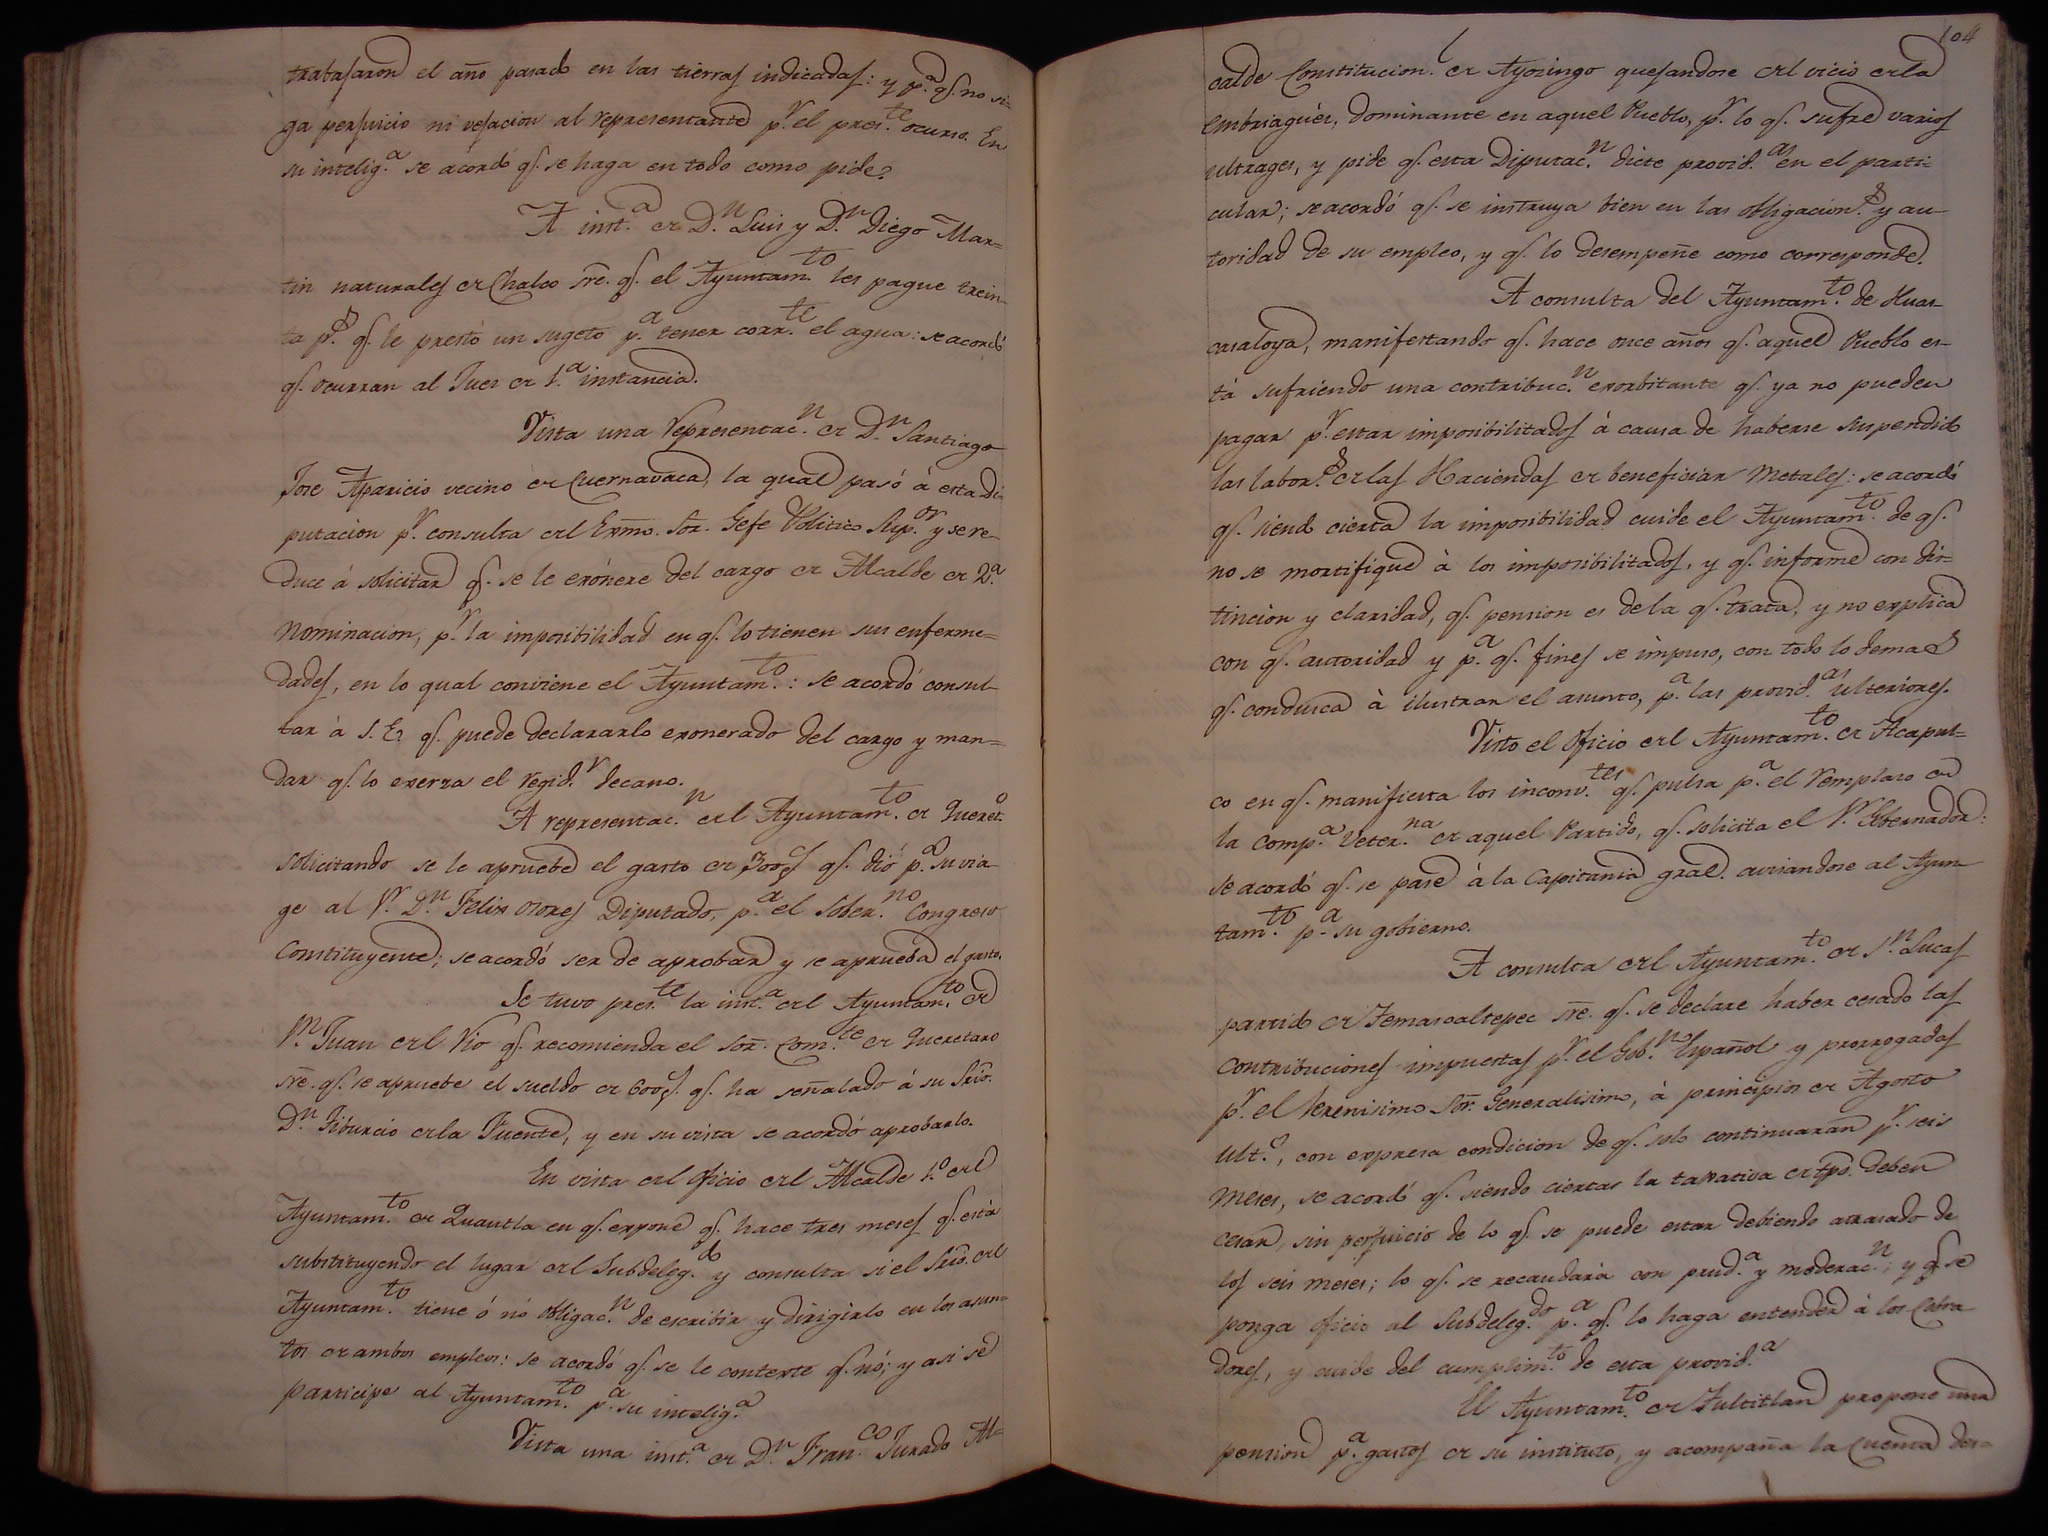 trabajaron el año pasado en las tierras indicadas: y p.a q.e no si-
ga perjuicio ni vejacion al representante p.r el pres.te ocurso. En
su intelig.a se acordó q.e se haga en todo como pide.
A inst.a de D.n Luis y D.n Diego Mar-
tin naturales de Chalco sre. q.e el Ayuntam.to les pague trein-
ta p.s q.e le prestó un sugeto p.a tener corr.te el agua: se acordó
q.e ocurran al Juez de 1.a instancia.
Vista una representac.n de D.n Santiago
Jose Aparicio vecino de Cuernavaca, la qual pasó á esta di-
putacion p.r consulta del Exmo. Sor. Gefe Politico Sup.or y se re-
duce á solicitar q.e se le exônere del cargo de Alcalde de 2.a
Nominacion, p.r la imposibilidad en q.e lo tienen sus enferme-
dades, en lo qual conviene el Ayuntam.to: se acordó consul-
tar á S.E. q.e puede declararlo exonerado del cargo y man-
dar q.e lo exerza el regid.r decano.
A representac.n del Ayuntam.to de Queret.o
solicitando se le apruebe el gasto de 300 p.s q.e dió p.a su via-
ge al S.r D.n Felix Osores Diputado, p.a el Sober.no Congreso
Constituyente; se acordó ser de aprobar y se aprueba el gasto.
Se tuvo pres.te la inst.a del Ayuntam.to de
S.n Juan del Rio q.e recomienda el Sor. Com.te de Queretaro
sre. q.e se apruebe el sueldo de 600 p.s q.e ha señalado á su Srio.
D.n Tiburcio de la Fuente, y en su vista se acordó aprobarlo.
En vista del oficio del Alcalde 1.o del
Ayuntam.to de Quautla en q.e expone q.e hace tres meses q.e está
substituyendo el lugar del Subdeleg.do y consulta si el Srio. del
Ayuntam.to tiene ó nó obligac.n de escribir y dirigirlo en los asun-
tos de ambos empleos: se acordó q.e se le conteste q.e nó; y asi se
participe al Ayuntam.to p.a su intelig.a
Vista una inst.a de D.n Fran.co Jurado Al-
104
calde Constitucion.l de Ayozingo quejandose del vicio de la
embriaguéz, dominante en aquel Pueblo, p.r lo q.e sufre varios
ultrages, y pide q.e esta Diputac.n dicte provid.as en el parti-
cular; se acordó q.e se instruya bien en las obligacion.s y au-
toridad de su empleo, y q.e lo desempeñe como corresponde.
A consulta del Ayuntam.to de Huas-
casaloya, manifestando q.e hace once años q.e aquel Pueblo es-
tá sufriendo una contribuc.n exorbitante q.e ya no pueden
pagar p.r estar imposibilitados á causa de haberse suspendido
las labor.s de las Haciendas de beneficiar Metales: se acordó
q.e siendo cierta la imposibilidad cuide el Ayuntam.to de q.e
no se mortifique à los imposibilitados, y q.e informe con dis-
tincion y claridad, q.e pension es de la q.e trata, y no explica
con q.e autoridad y p.a q.e fines se impuso, con todo lo demas
q.e conduzca à ilustrar el asunto, p.a las provid.as ulteriores.
Visto el oficio del Ayuntam.to de Acapul-
co en q.e manifiesta los inconv.tes q.e pulsa p.a el remplazo de
la Comp.a Veter.na de aquel Partido, q.e solicita el S.r Gobernador:
se acordó q.e se pase à la Capitania gral. avisandose al Ayun-
tam.to p.a su gobierno.
A consulta del Ayuntam.to de S.n Lucas
partido de Temascaltepec sre. q.e se declare haber cesado las
contribuciones impuestas p.r el Gob.no Español y prorrogadas
p.r el Serenisimo Sor. Generalisimo, à principios de Agosto
ult.o, con expresa condicion de q.e solo continuaran p.r seis
meses, se acordó q.e siendo ciertas la taxativa de tpo. deben
cesar, sin perjuicio de lo q.e se puede estar debiendo atrasado de
los seis meses; lo q.e se recaudará con prud.a y moderac.n; y q.e se
ponga oficio al Subdeleg.do p.a q.e lo haga entender à los Cobra-
dores, y cuide del cumplim.to de esta provid.a
El Ayuntam.to de Tultitlan propone una
pension p.a gastos de su instituto, y acompaña la cuenta